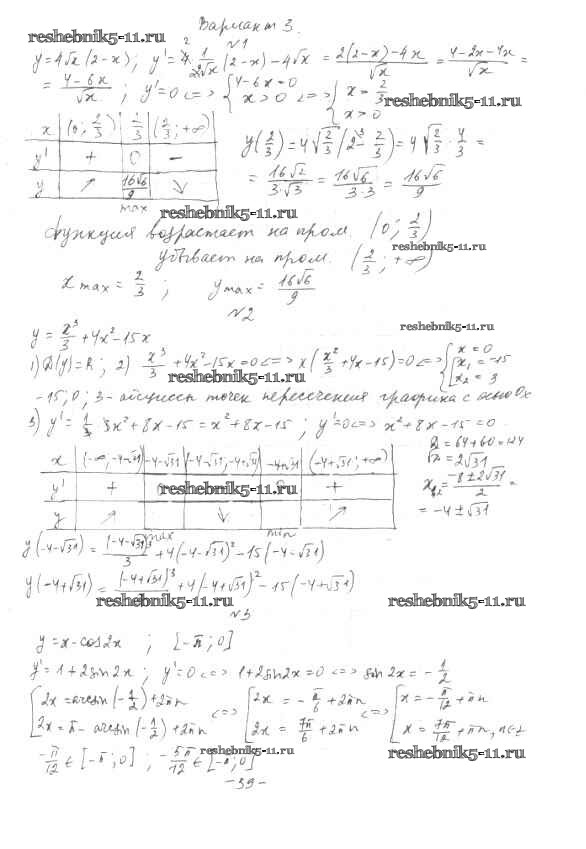 Вариант 3.
reshebnik5-11.ru
№1
y=4√x(2-x); y'=4·1/(2√x)(2-x)-4√x = (2(2-x)-4x)/√x = (4-2x-4x)/√x =
= (4-6x)/√x ; y'=0 <=> { 4-6x=0 x>0 <=> { x=2/3 x>0
reshebnik5-11.ru
x | (0; 2/3) | 2/3 | (2/3; +∞)
y' | + | 0 | -
y | ↗ | 16√6/9 | ↘
max
y(2/3)=4√(2/3)(2-2/3)=4√(2/3)·4/3=
= 16√2/(3·√3) = 16√6/(3·3) = 16√6/9
reshebnik5-11.ru
Функция возрастает на пром. (0; 2/3)
reshebnik5-11.ru
убывает на пром. (2/3; +∞)
x max = 2/3 ; y max = 16√6/9
№2
reshebnik5-11.ru
y= x³/3 +4x²-15x
1) D(y)=R; 2) x³/3 +4x²-15x=0 <=> x(x²/3+4x-15)=0 <=> { x=0 x₁=-15 x₂=3
reshebnik5-11.ru
-15; 0; 3 - абсциссы точек пересечения графика с осью Ox
3) y'= 1/3 · 3x²+8x-15 = x²+8x-15 ; y'=0 <=> x²+8x-15=0
D=64+60=124
√D=2√31
x₁,₂= (-8±2√31)/2 =
= -4±√31
x | (-∞; -4-√31) | -4-√31 | (-4-√31; -4+√31) | -4+√31 | (-4+√31; +∞)
y' | + | | | | +
reshebnik5-11.ru
y | ↗ | | ↘ | | ↗
max min
y(-4-√31) = (-4-√31)³/3 +4(-4-√31)²-15(-4-√31)
y(-4+√31) = (-4+√31)³/3 +4(-4+√31)²-15(-4+√31)
reshebnik5-11.ru reshebnik5-11.ru
№3
y=x-cos2x ; [-π; 0]
y'=1+2sin2x ; y'=0 <=> 1+2sin2x=0 <=> sin2x=-1/2
[ 2x=arcsin(-1/2)+2πn 2x=π-arcsin(-1/2)+2πn <=> [ 2x=-π/6+2πn 2x=7π/6+2πn <=> [ x=-π/12+πn x=7π/12+πn, n∈Z
-π/12 ∈ [-π; 0] ; -5π/12 ∈ [-π; 0]
reshebnik5-11.ru reshebnik5-11.ru
-39-